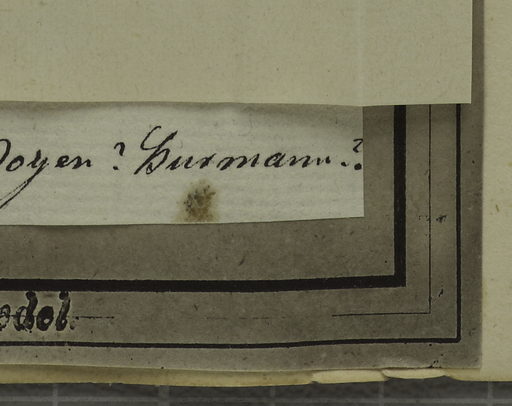 Doyen? Hurmann.?
edel.